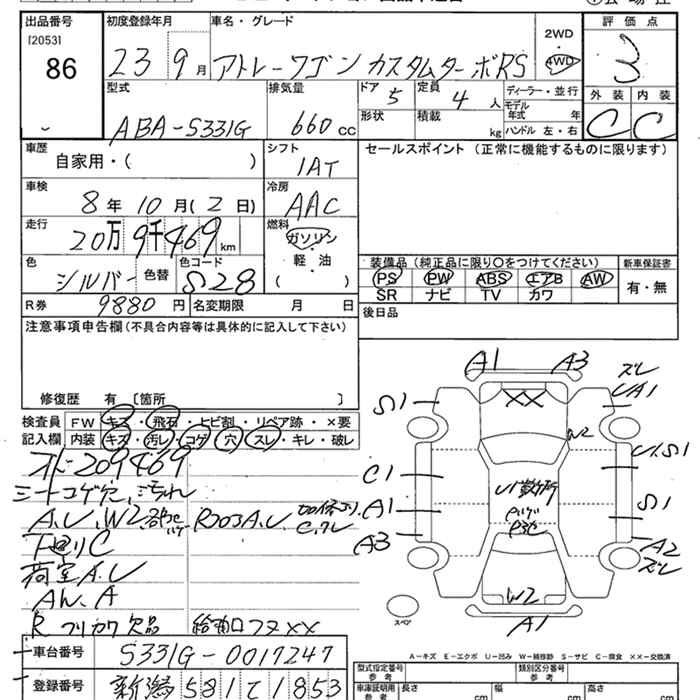 出品番号 初度登録年月 車名・グレード 2WD 評価点
[2053] 86 23 9月 アトレーワゴン カスタムターボRS 4WD 3
型式 排気量 ドア 5 定員 4人 ディーラー・並行 外装 内装
ABA-S331G 660cc 形状 積載 kg モデル年式 年 C C
ハンドル 左・右
車歴 シフト セールスポイント(正常に機能するものに限ります)
自家用・( ) IAT
車検 冷房
8年10月(2日) AAC
走行 燃料
20万9千469km ガソリン
軽・油
( )
色 色替 色コード 装備品(純正品に限り○をつけてください) 新車保証書
シルバー S28 PS PW ABS エアB AW 有・無
SR ナビ TV カワ
R券 9880円 名変期限 月 日 後日品
注意事項申告欄(不具合内容等は具体的に記入して下さい)
修復歴 有〔箇所 〕
検査員 FW キズ・飛石・ヒビ割・リペア跡・×要
記入欄 内装 キズ・汚レ・コゲ・穴・スレ・キレ・破レ
オドー209469
シートコゲ穴、汚れ
A.U、W2
下廻りC
荷室A.U
AW.A
R フリカワ欠品 給油口フタ××
A1 A3
ズレ
UA1
S1
××
W2
U1.S1
C1
U1散所
A1
S1
A3
A2
ズレ
W2
A1
スペア
A-キズ E-エクボ U-凹み W-補修跡 S-サビ C-腐食 ××-交換済
車台番号 S331G-0017247 型式指定番号 参考 類別区分番号 参考
登録番号 新潟581て1853 車庫証明用 参考 長さ cm 幅 cm 高さ cm